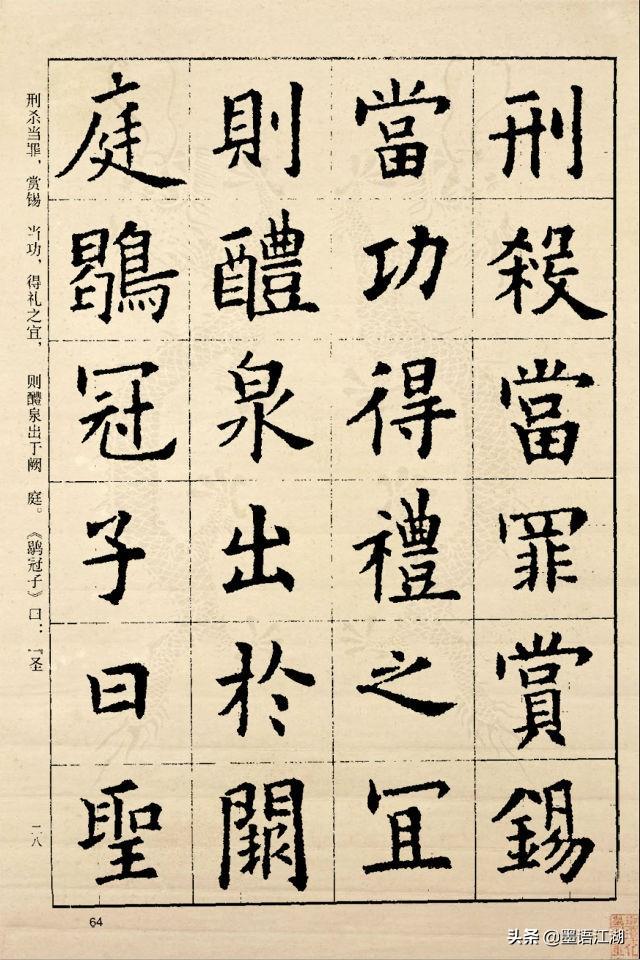 刑殺當罪賞錫
當功得禮之冝
則醴泉出於闕
庭鶡冠子曰聖
刑杀当罪，赏锡 当功，得礼之宜， 则醴泉出于阙 庭。《鹖冠子》曰：“圣
二八
64
头条 @墨语江湖